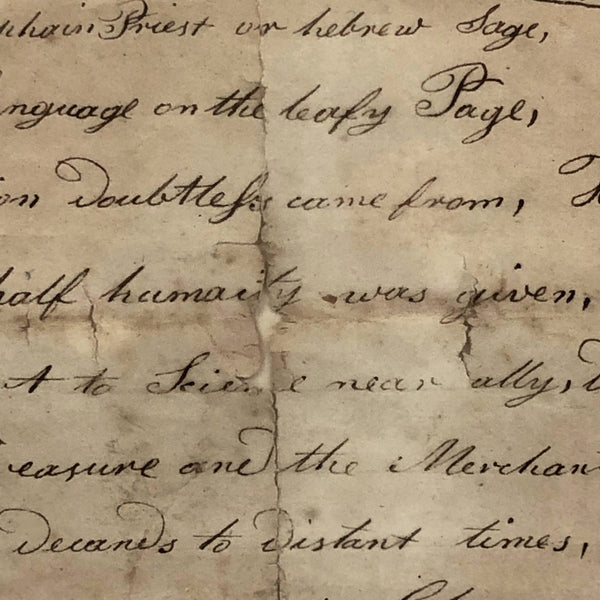 Priest or hebrew Sage,
on the leafy Page,
Doubtless came from,
half humaity was given,
t to Science near ally,
easure and the Merchan
Decands to Distant times,